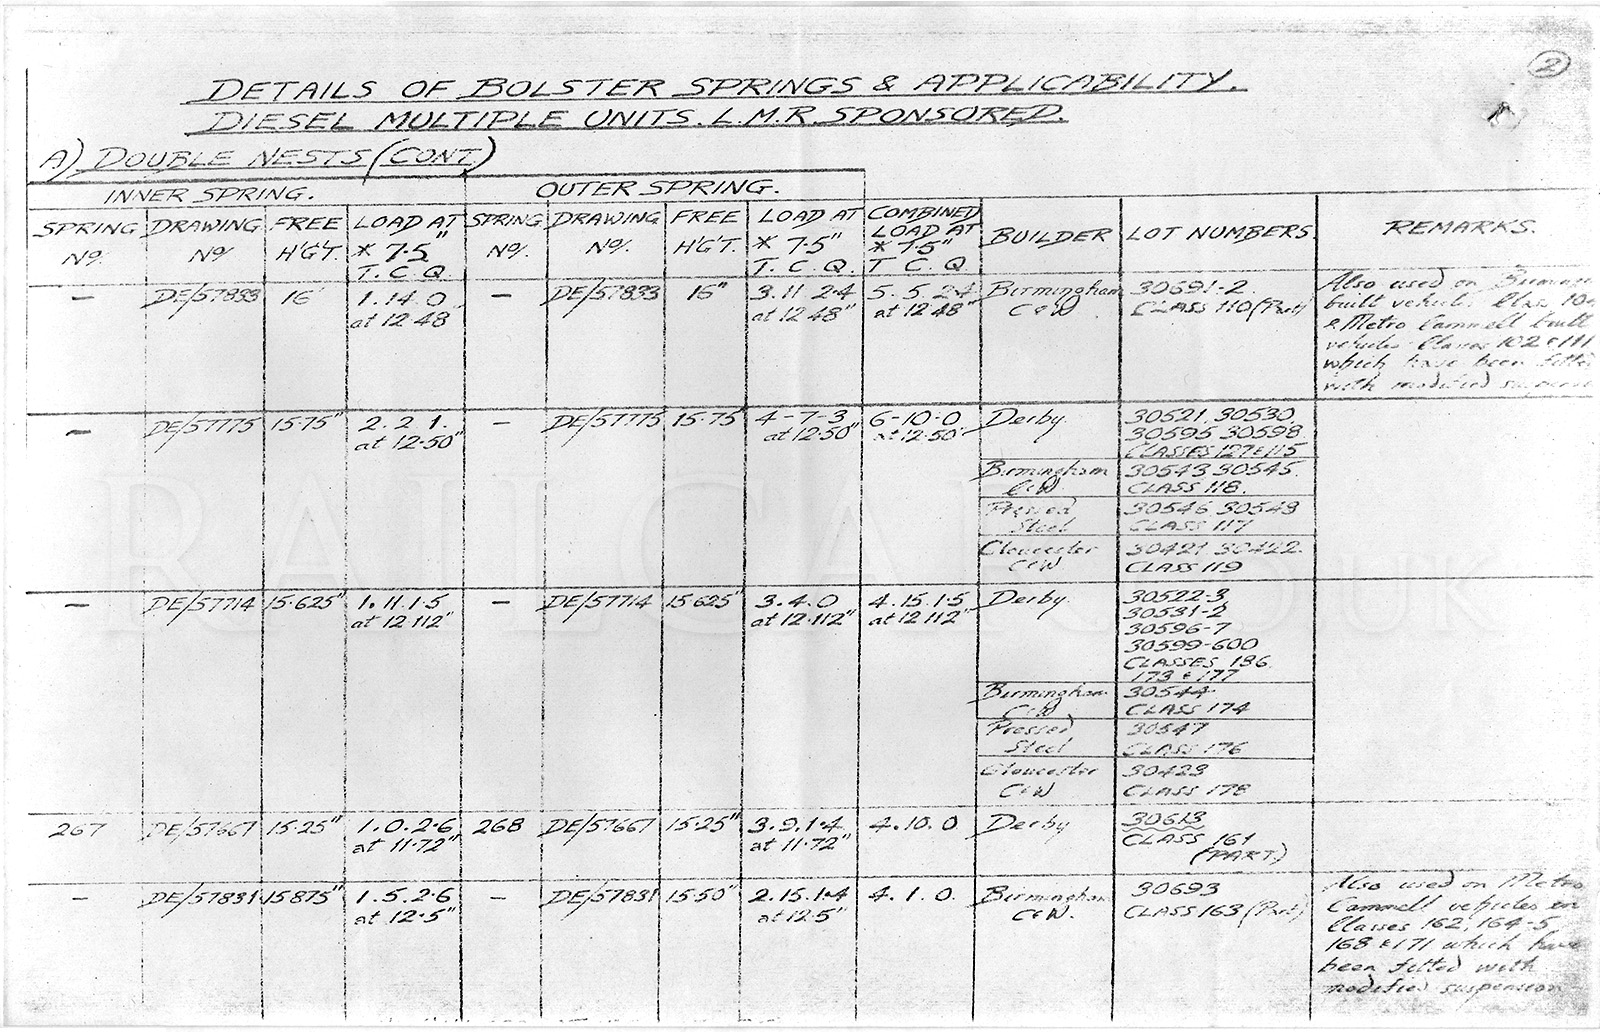 2
DETAILS OF BOLSTER SPRINGS & APPLICABILITY.
DIESEL MULTIPLE UNITS. L.M.R. SPONSORED.
A) DOUBLE NESTS (CONT)
INNER SPRING. OUTER SPRING.
SPRING No. DRAWING No. FREE H'G'T. LOAD AT * 7.5" T. C. Q. SPRING No. DRAWING No. FREE H'G'T. LOAD AT * 7.5" T. C. Q. COMBINED LOAD AT * 7.5" T C. Q. BUILDER LOT NUMBERS. REMARKS.
– DE/57833 16" 1.14.0 – DE/57833 16" 3.11.2.4 5.5.2.4 Birmingham 30691-2
at 12.48 at 12.48" at 12.48" C & W. CLASS 110 (Part)
Also used on
built vehicle
& Metro Cammell built
vehicles Classes 102 & 111
which have been fitted
with modified
– DE/57775 15.75" 2.2.1. – DE/57775 15.75" 4-7-3 6-10-0 Derby. 30521. 30530.
at 12.50" at 12.50" at 12.50" 30595 30598
CLASSES 127 & 115
Birmingham 30543 30545.
C&W CLASS 118.
Pressed 30546 30548
Steel CLASS 117
Gloucester 30421 30422.
C&W CLASS 119
– DE/57714 15.625" 1.11.1.5 – DE/57714 15.625" 3.4.0 4.15.1.5 Derby. 30522-3
at 12.112" at 12.112" at 12.112" 30531-2
30596-7
30599-600
CLASSES 186.
173 & 177
Birmingham 30544
C&W CLASS 174
Pressed 30547
Steel CLASS 176
Gloucester 30423
C&W CLASS 178
267 DE/57667 15.25" 1.0.2.6 268 DE/57667 15.25" 3.9.1.4 4.10.0 Derby 30613
at 11.72" at 11.72" CLASS 161
(PART)
– DE/57831 15.875" 1.5.2.6 – DE/57831 15.50" 2.15.1.4 4.1.0. Birmingham 30693
at 12.5" at 12.5" C&W. CLASS 163 (Part)
Also used on Metro
Cammell vehicles on
Classes 162, 164-5
168 & 171 which have
been fitted with
modified suspension
RAILCAR.CO.UK